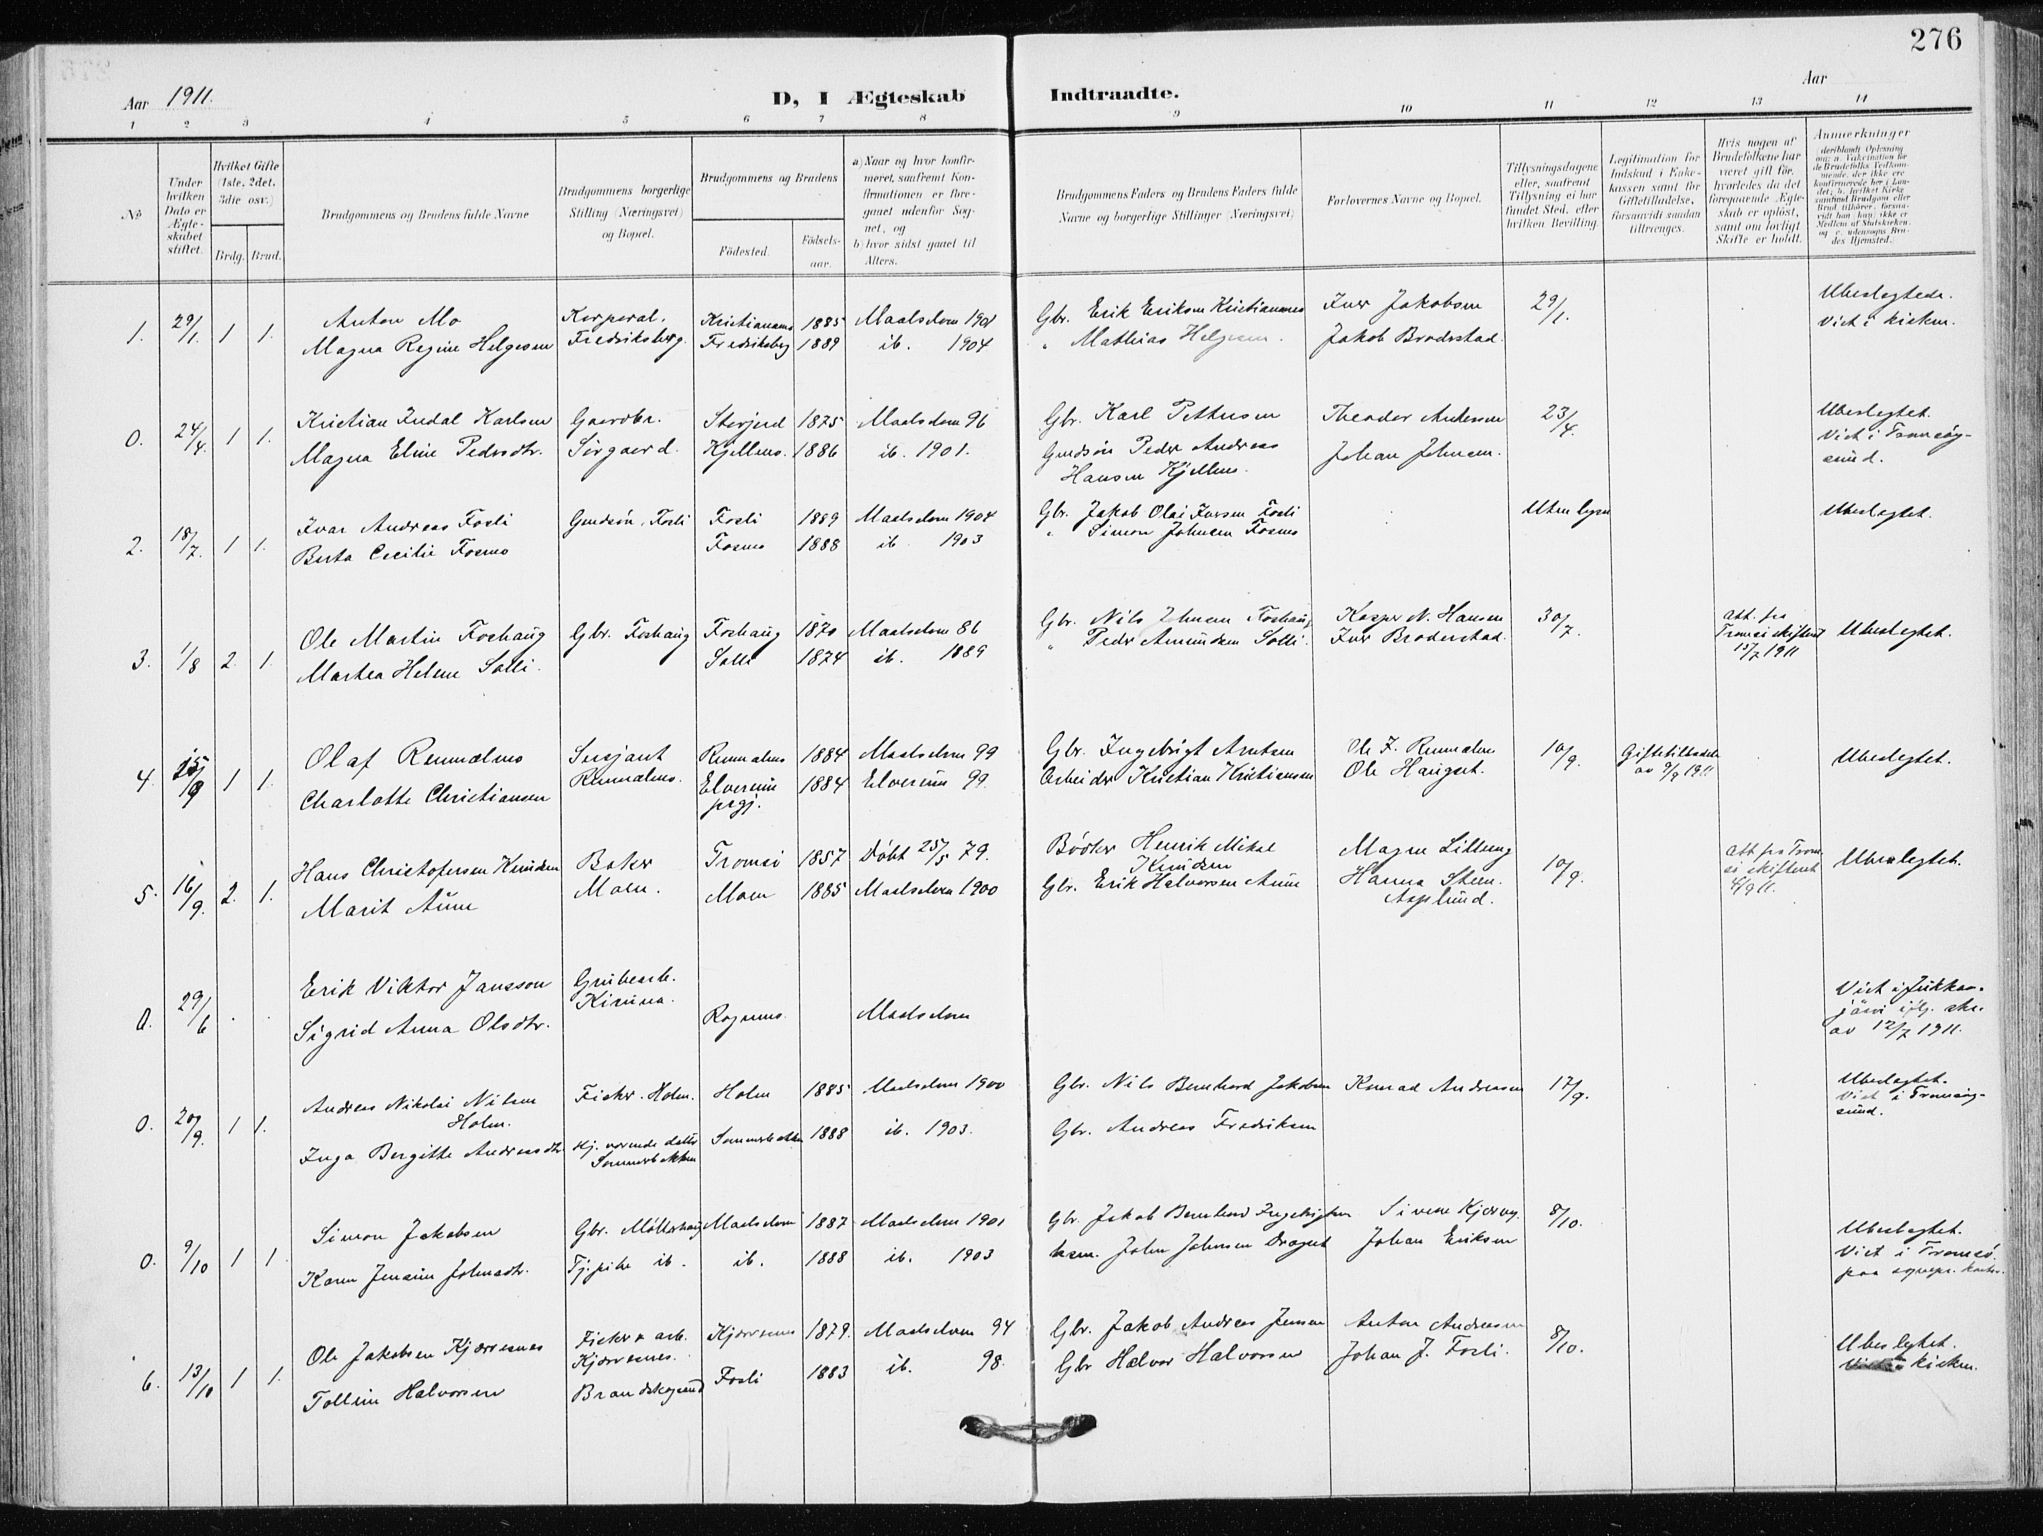 276
Aar 1911.
D, I Ægteskab Indtraadte.
Aar
1 2 3 4 5 6 7 8 9 10 11 12 13 14
No
Under hvilken Dato er Ægteskabet stiftet.
Hvilket Gifte (1ste, 2det, 3die osv.)
Brdg. Brud.
Brudgommens og Brudens fulde Navne
Brudgommens borgerlige Stilling (Næringsvei) og Bopæl.
Brudgommens og Brudens
Födested. Födselsaar.
a) Naar og hvor konfirmeret, saafremt Konfirmationen er foregaaet udenfor Sognet, og
b) hvor sidst gaaet til Alters.
Brudgommens Faders og Brudens Faders fulde Navne og borgerlige Stillinger (Næringsvei)
Forlovernes Navne og Bopæl.
Tillysningsdagene eller, saafremt Tillysning ei har fundet Sted, efter hvilken Bevilling.
Legitimation for Indskud i Enkekassen samt for Giftetilladelse, forsaavidt saadan tiltrænges.
Hvis nogen af Brudefolkene har været gift før, hvorledes da det foregaaende Ægteskab er opløst, samt om lovligt Skifte er holdt.
Anmerkninger
1. 29/1. 1 1. Anton Mo Korporal, Kristiansnes 1885 Maalselven 1901 Gbr. Erik Eriksen Kristiansnes Iver Jakobsen 29/1. Ubeslegtede.
Magna Regine Helgesen Fredriksberg. Fredriksberg 1889 ib. 1904 " Mathias Helgesen. Jakob Broderstad. Viet i kirken.
0. 24/4. 1 1. Kristian Indal Karlsen Gaardbr. 1875 Maalselven 96 Gbr. Karl Pettersen Theodor Andersen 23/4. Ubeslegtet.
Magna Eline Pedersdtr. Sørgaard. Kjellmo. 1886 ib. 1901. Gmdsön Peder Andreas Johan Johnsen. Viet i Tromsöy-
Hansen Kjellmo. sund.
2. 18/7. 1 1. Ivar Andreas Fosli Gmdsön, Fosli Fosli 1889 Maalselven 1904 Gbr. Jakob Olai Iversen Fosli Uten lysn Ubeslegtet.
Berta Cecilie Fosmo Fosmo 1888 ib. 1903 " Simon Johnsen Fosmo
3. 1/8 2. 1. Ole Martin Foshaug Gbr. Foshaug Foshaug 1870 Maalselven 86 Gbr. Nils Johnsen Foshaug Kasper N. Hansen 30/7. att. fra Ubeslegtet.
Martea Helene Solli. Solli 1874 ib. 1889 " Peder Amundsen Solli. Iver Broderstad. Tromsö skifterett
15/7 1911
4. 15/9 1 1. Olaf Rennælmo Sersjant Rennælmo 1884 Maalselven 99 Gbr. Ingebrigt Arntsen Ole I. Rennælmo 10/9. Giftetilladelse Ubeslegtet.
Charlotte Christiansen Rennælmo. Elverum 1884 Elverum 99. Arbeider Kristian Kristiansen Ole Haugset. av 9/9 1911
prgj.
5. 16/9. 2. 1. Hans Christofersen Knudsen Baker Tromsö 1857 Döbt 25/5 79. Bödker Henrik Mikal Magne Lilleng 10/9. att. fra Trom- Ubeslegtet.
Knudsen sö skifteret
Marit Aune Moen. Moen 1885 Maalselven 1900 Gbr. Erik Halvorsen Aune Hanna Steen 4/9 11.
Asplund.
0. 29/6 Erik Viktor Jansson Grubearb. Viet i Jukkas-
Kiruna. järvi iflg. skr.
Sigrid Anna Olsdtr. Rognmo. Maalselven av 12/7 1911.
0. 20/9. 1 1. Andreas Nikolai Nilsen Fisker. Holm. Holm 1885 Maalselven 1900 Gbr. Nils Bernhard Jakobsen Konrad Andreassen 17/9. Ubeslegtet.
Holm. Viet i Tromsöy-
Inga Bergitte Andreasdtr. Hj. værende datter Sommerbakken 1888 ib. 1903. Gbr. Andreas Fredriksen sund.
Sommerbakken
0. 9/10 1 1. Simon Jakobsen Gbr. Maalselven 1887 Maalselven 1901 Gbr. Jakob Bernhard Ingebrigtsen 8/10. Ubeslegtet.
Karen Jensine Johnsdtr. Tj. pike ib. ib. 1888 ib. 1903 John Johnsen Draget Johan Eriksen Viet i Tromsö
paa sognepr. kontor.
6. 13/10 1 1. Ole Jakobsen Kjærresnes Fisker & arb. Kjærresnes 1879. Maalselven 94 Gbr. Jakob Andreas Jensen Anton Andreassen 8/10. Ubeslegtet.
Kjærresnes.
Tolline Halvorsen Brandskogmo Fosli 1883 ib. 98. Gbr Halvor Halvorsen Johan J. Fosli. Viet i kirken.